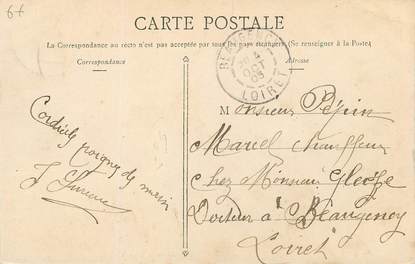 6+
CARTE POSTALE
La Correspondance au recto n'est pas acceptée par tous les pays étrangers (Se renseigner à la Poste)
Correspondance
Adresse
BEAUGENCY
4
OCT
05
LOIRET
Monsieur Péjoin
Marcel chauffeur
Chez Monsieur
Docteur à Beaugency
Loiret
Cordiale poignée de main